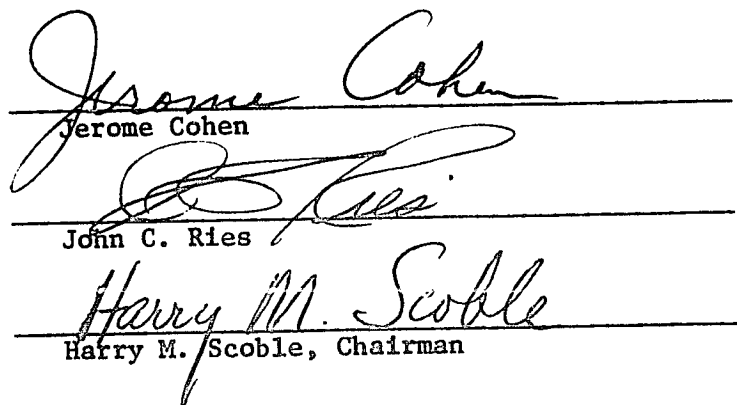 Jerome Cohen
Jerome Cohen
J C Ries
John C. Ries
Harry M. Scoble
Harry M. Scoble, Chairman